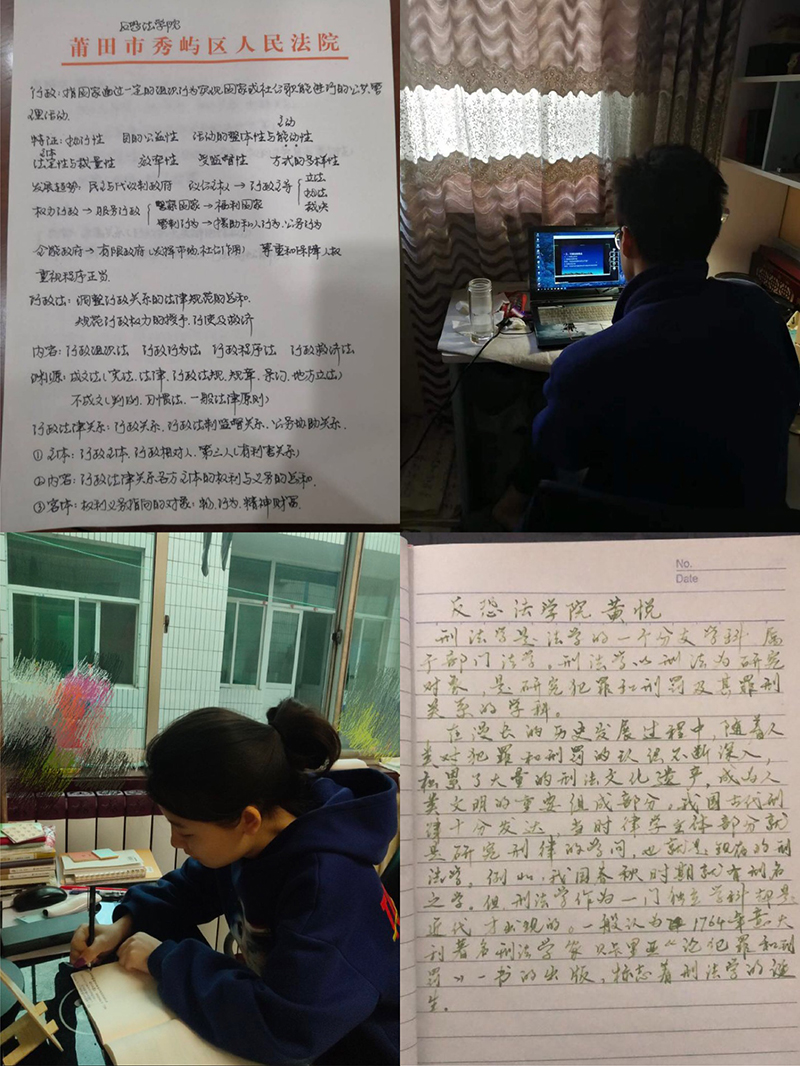 反恐法学院
莆田市秀屿区人民法院
行政：指国家通过一定的组织行为实现国家或社会职能进行的公共管
理活动.
特征：执行性 目的公益性 活动的整体性与能动性
主动
法定性与裁量性 效率性 受监督性 方式的多样性
发展趋势：民主与代议制政府 议会主权→行政主导 立法
执法
裁决
权力行政→服务行政 警察国家→福利国家
管制行为→援助私人行为、公务行为
全能政府→有限政府(发挥市场、社会作用) 尊重和保障人权
重视程序正当.
行政法：调整行政关系的法律规范的总和.
规范行政权力的授予、行使及救济
内容：行政组织法 行政行为法 行政程序法 行政救济法
渊源：成文法(宪法、法律、行政法规、规章、条约、地方立法)
不成文(判例、习惯法、一般法律原则)
行政法律关系：行政关系、行政法制监督关系、公务协助关系.
①主体：行政主体、行政相对人、第三人(有利害关系)
②内容：行政法律关系各方主体的权利与义务的总和.
③客体：权利义务指向的对象：物、行为、精神财富.
No.
Date
反恐法学院黄悦
刑法学是法学的一个分支学科 属
于部门法学，刑法学以刑法为研究
对象 是研究犯罪和刑罚及其罪刑
关系的学科。
在漫长的历史发展过程中，随着人
类对犯罪和刑罚的认识不断深入，
积累了大量的刑法文化遗产，成为人
类文明的重要组成部分。我国古代刑
律十分发达，当时律学主体部分就
是研究刑律的学问，也就是现在的刑
法学。例如，我国春秋时期就有刑名
之学。但刑法学作为一门独立学科却是
近代才出现的。一般认为 1764年意大
利著名刑法学家贝卡里亚《论犯罪和刑
罚》一书的出版，标志着刑法学的诞
生.